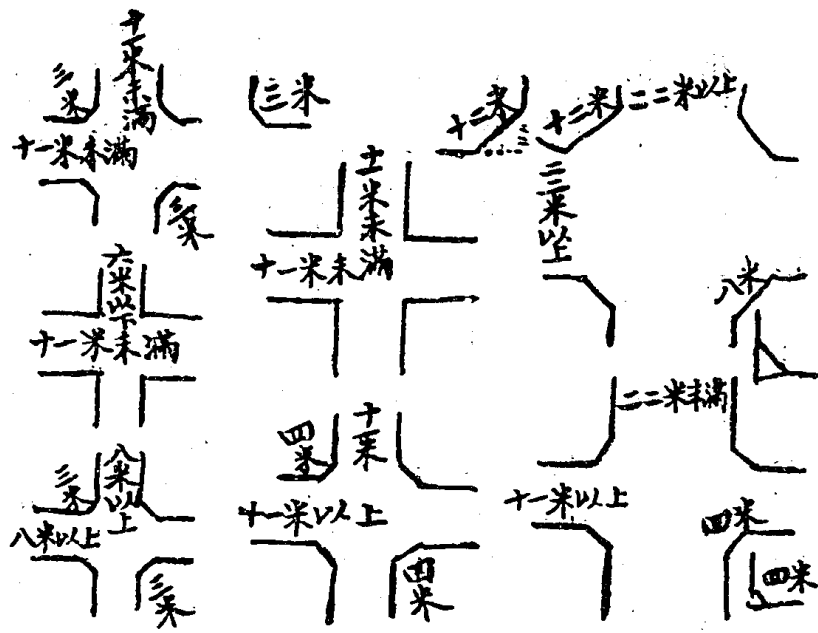 十一米未滿
三米
十一米未滿
三米
六米以下
十一米未滿
八米以上
三米
八米以上
三米
三米
十一米未滿
十一米未滿
四米
十一米以上
四米
十二米
十二米
二二米以上
二二米以上
八米
二二米未滿
十一米以上
四米
四米